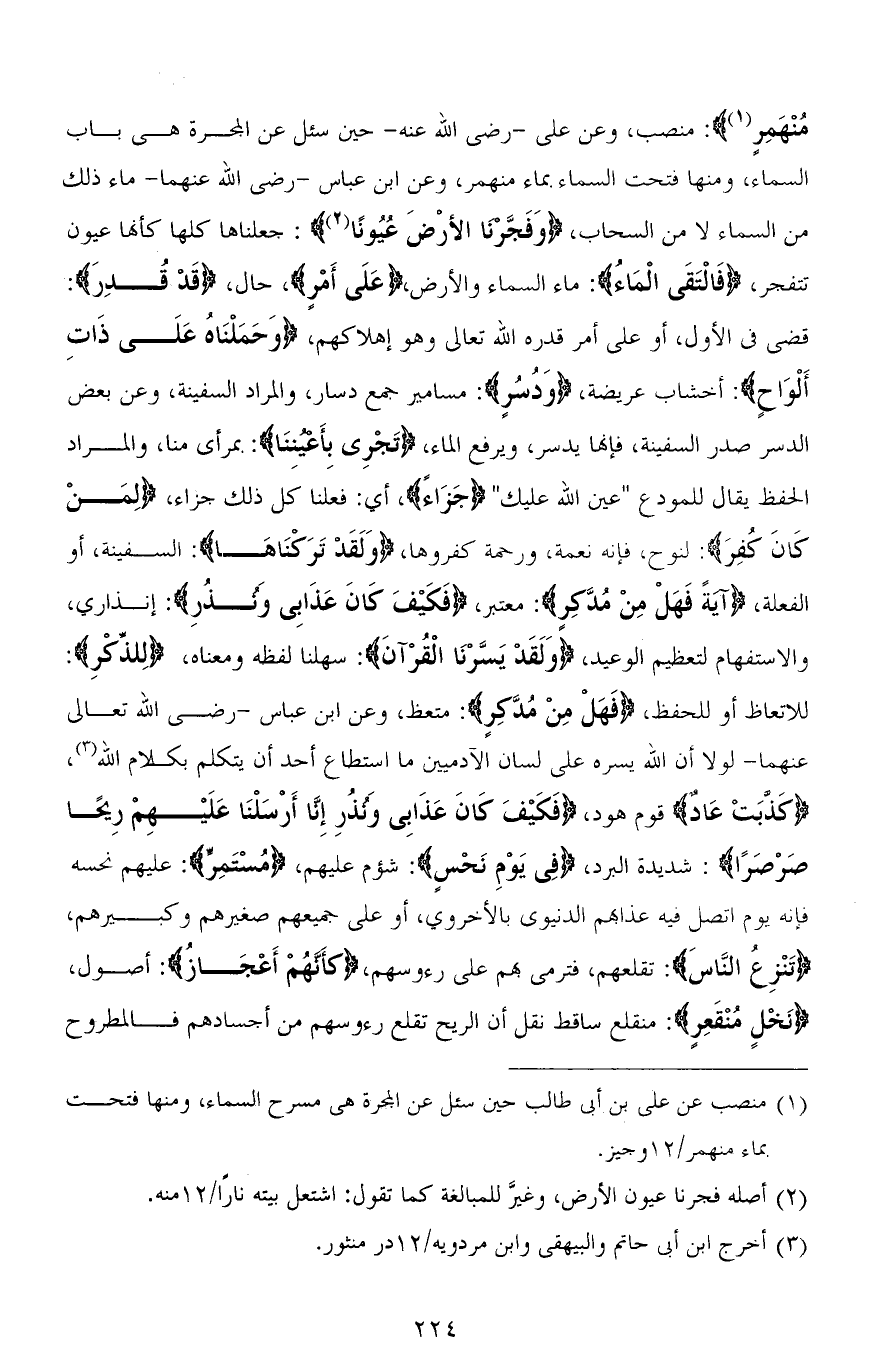 مُنْهَمِرٍ(١)﴾: منصب، وعن على -رضى الله عنه- حين سئل عن المجرة هى باب
السماء، ومنها فتحت السماء بماء منهمر، وعن ابن عباس -رضى الله عنهما- ماء ذلك
من السماء لا من السحاب، ﴿وَفَجَّرْنَا الأَرْضَ عُيُونًا(٢)﴾ : جعلناها كلها كأنها عيون
تتفجر، ﴿فَالْتَقَى الْمَاءُ﴾: ماء السماء والأرض، ﴿عَلَى أَمْرٍ﴾، حال، ﴿قَدْ قُدِرَ﴾:
قضى فى الأول، أو على أمر قدره الله تعالى وهو إهلاكهم، ﴿وَحَمَلْنَاهُ عَلَى ذَاتِ
أَلْوَاحٍ﴾: أخشاب عريضة، ﴿وَدُسُرٍ﴾: مسامير جمع دسار، والمراد السفينة، وعن بعض
الدسر صدر السفينة، فإنها يدسر، ويرفع الماء، ﴿تَجْرِى بِأَعْيُنِنَا﴾: بمرأى منا، والمراد
الحفظ يقال للمودع "عين الله عليك" ﴿جَزَاءً﴾، أي: فعلنا كل ذلك جزاء، ﴿لِمَنْ
كَانَ كُفِرَ﴾: لنوح، فإنه نعمة، ورحمة كفروها، ﴿وَلَقَدْ تَرَكْنَاهَا﴾: السفينة، أو
الفعلة، ﴿آيَةً فَهَلْ مِنْ مُدَّكِرٍ﴾: معتبر، ﴿فَكَيْفَ كَانَ عَذَابِى وَنُذُرِ﴾: إنذاري،
والاستفهام لتعظيم الوعيد، ﴿وَلَقَدْ يَسَّرْنَا الْقُرْآنَ﴾: سهلنا لفظه ومعناه، ﴿لِلذِّكْرِ﴾:
للاتعاظ أو للحفظ، ﴿فَهَلْ مِنْ مُدَّكِرٍ﴾: متعظ، وعن ابن عباس -رضى الله تعالى
عنهما- لولا أن الله يسره على لسان الآدميين ما استطاع أحد أن يتكلم بكلام الله(٣)،
﴿كَذَّبَتْ عَادٌ﴾ قوم هود، ﴿فَكَيْفَ كَانَ عَذَابِى وَنُذُرِ إِنَّا أَرْسَلْنَا عَلَيْهِمْ رِيحًا
صَرْصَرًا﴾ : شديدة البرد، ﴿فِى يَوْمِ نَحْسٍ﴾: شؤم عليهم، ﴿مُسْتَمِرٍّ﴾: عليهم نحسه
فإنه يوم اتصل فيه عذابهم الدنيوى بالأخروي، أو على جميعهم صغيرهم وكبيرهم،
﴿تَنْزِعُ النَّاسَ﴾: تقلعهم، فترمى بهم على رءوسهم، ﴿كَأَنَّهُمْ أَعْجَازُ﴾: أصول،
﴿نَخْلٍ مُنْقَعِرٍ﴾: منقلع ساقط نقل أن الريح تقلع رءوسهم من أجسادهم فالمطروح
(١) منصب عن على بن أبى طالب حين سئل عن المجرة هى مسرح السماء، ومنها فتحت
بماء منهمر/١٢وجيز.
(٢) أصله فجرنا عيون الأرض، وغيرَّ للمبالغة كما تقول: اشتعل بيته نارًا/١٢منه.
(٣) أخرج ابن أبى حاتم والبيهقى وابن مردويه/١٢در منثور.
٢٢٤